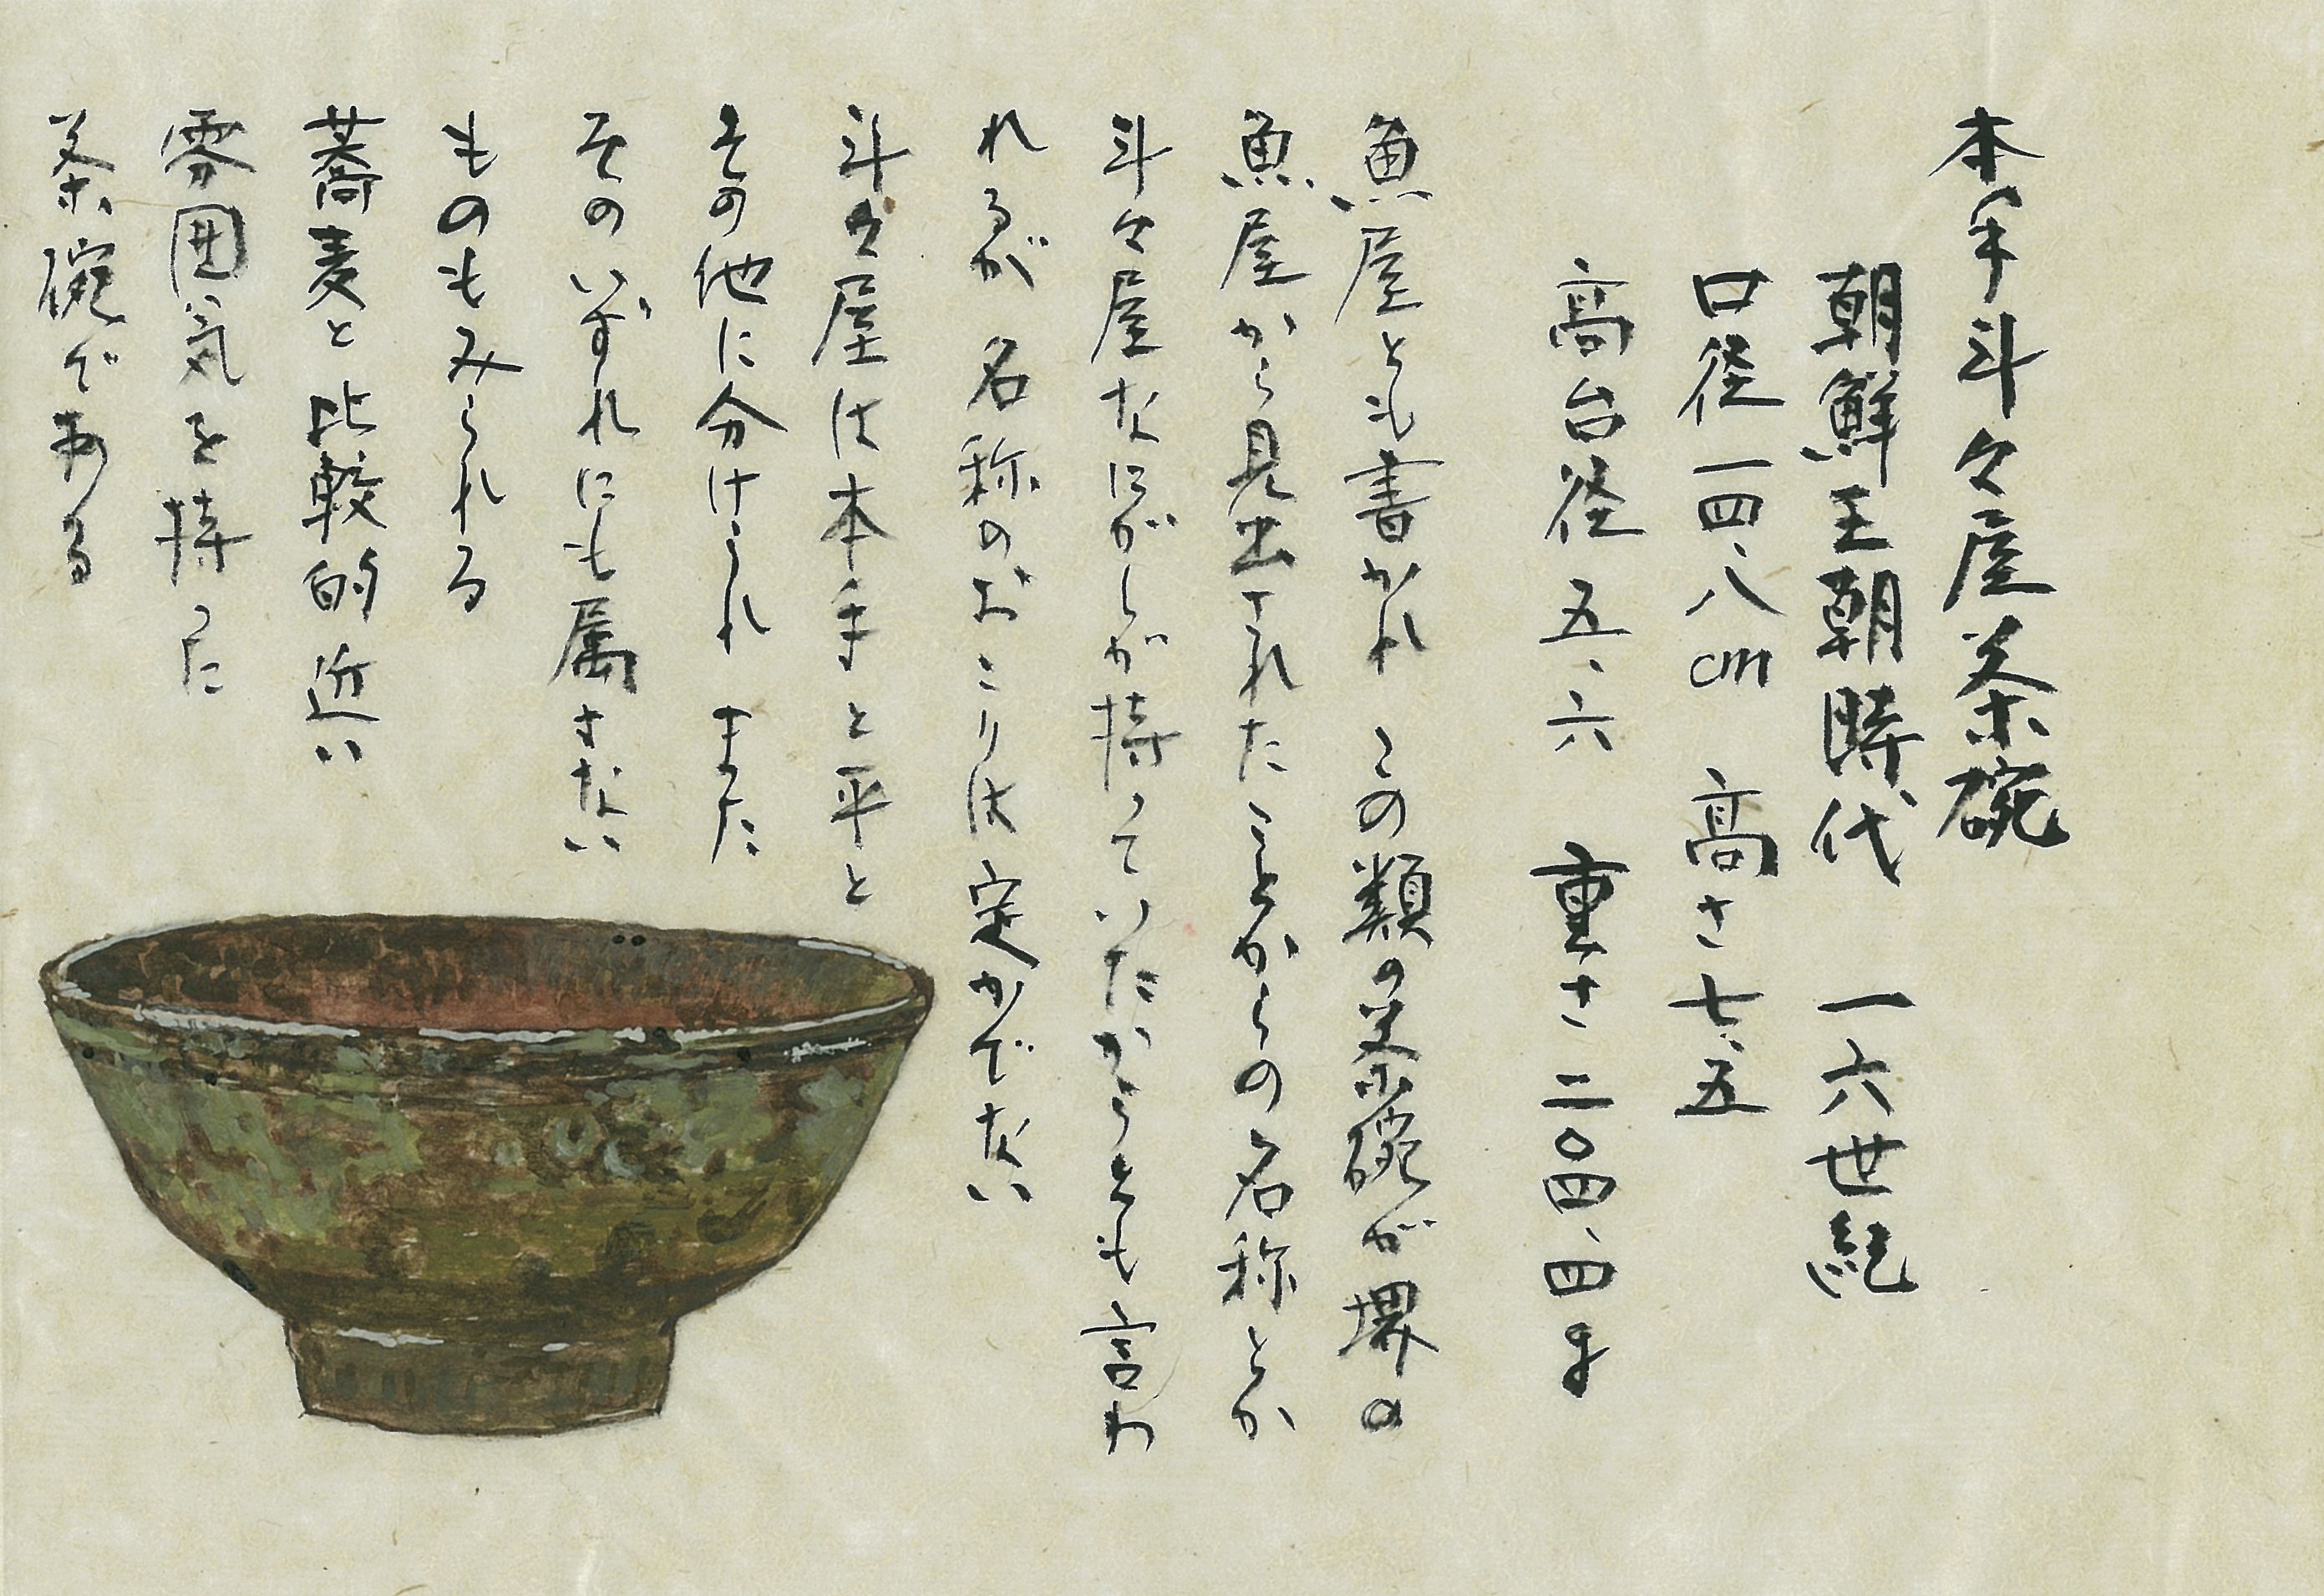 本手斗々屋茶碗
朝鮮王朝時代 一六世紀
口径一四、八cm 高さ七、五
高台径 五、六 重さ二〇四、四g
魚屋とも書かれ この類の茶碗が堺の
魚屋から見出されたことからの名称とか
斗々屋なにがしが持っていたからとも言わ
れるが 名称のおこりは定かでない
斗々屋は本手と平と
その他に分けられ また
そのいずれにも属さない
ものもみられる
蕎麦と比較的近い
雰囲気を持った
茶碗である